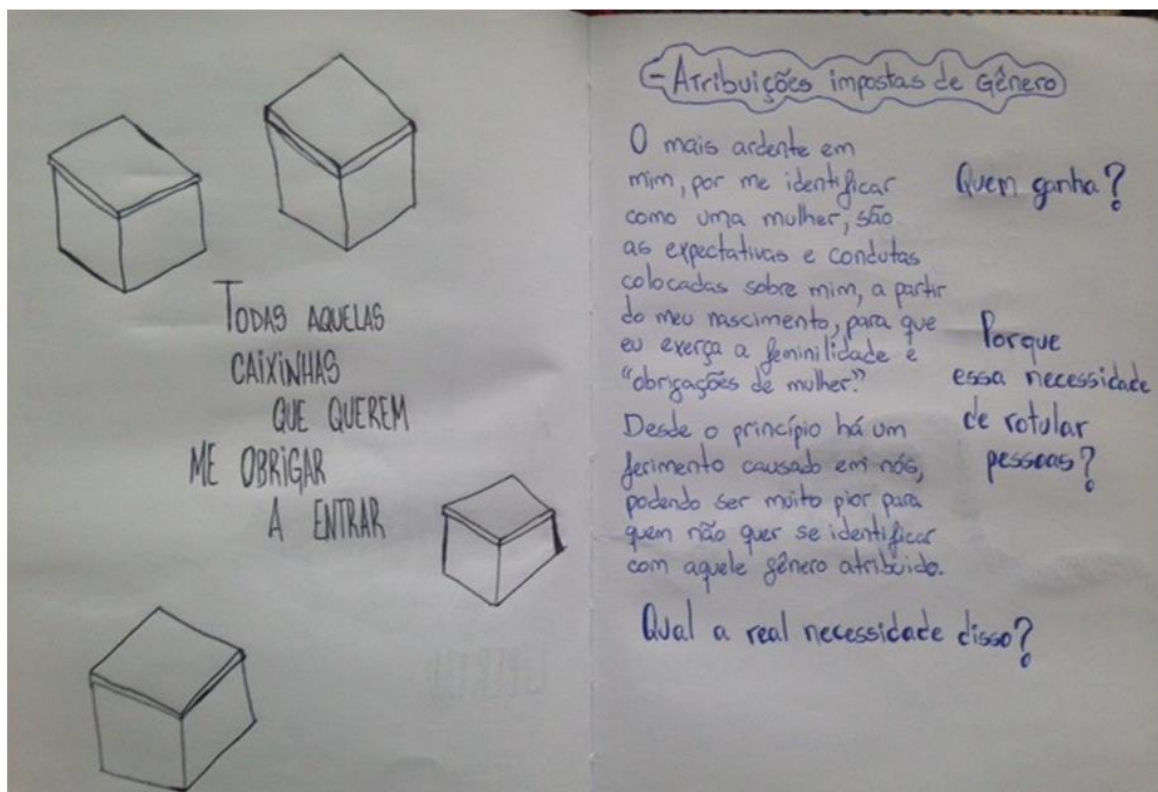 TODAS AQUELAS
CAIXINHAS
QUE QUEREM
ME OBRIGAR
A ENTRAR
- Atribuições impostas de Gênero
O mais ardente em
mim, por me identificar
como uma mulher, são
as expectativas e condutas
colocadas sobre mim, a partir
do meu nascimento, para que
eu exerça a feminilidade e
"obrigações de mulher."
Desde o princípio há um
ferimento causado em nós,
podendo ser muito pior para
quem não quer se identificar
com aquele gênero atribuído.
Quem ganha?
Porque
essa necessidade
de rotular
pessoas?
Qual a real necessidade disso?